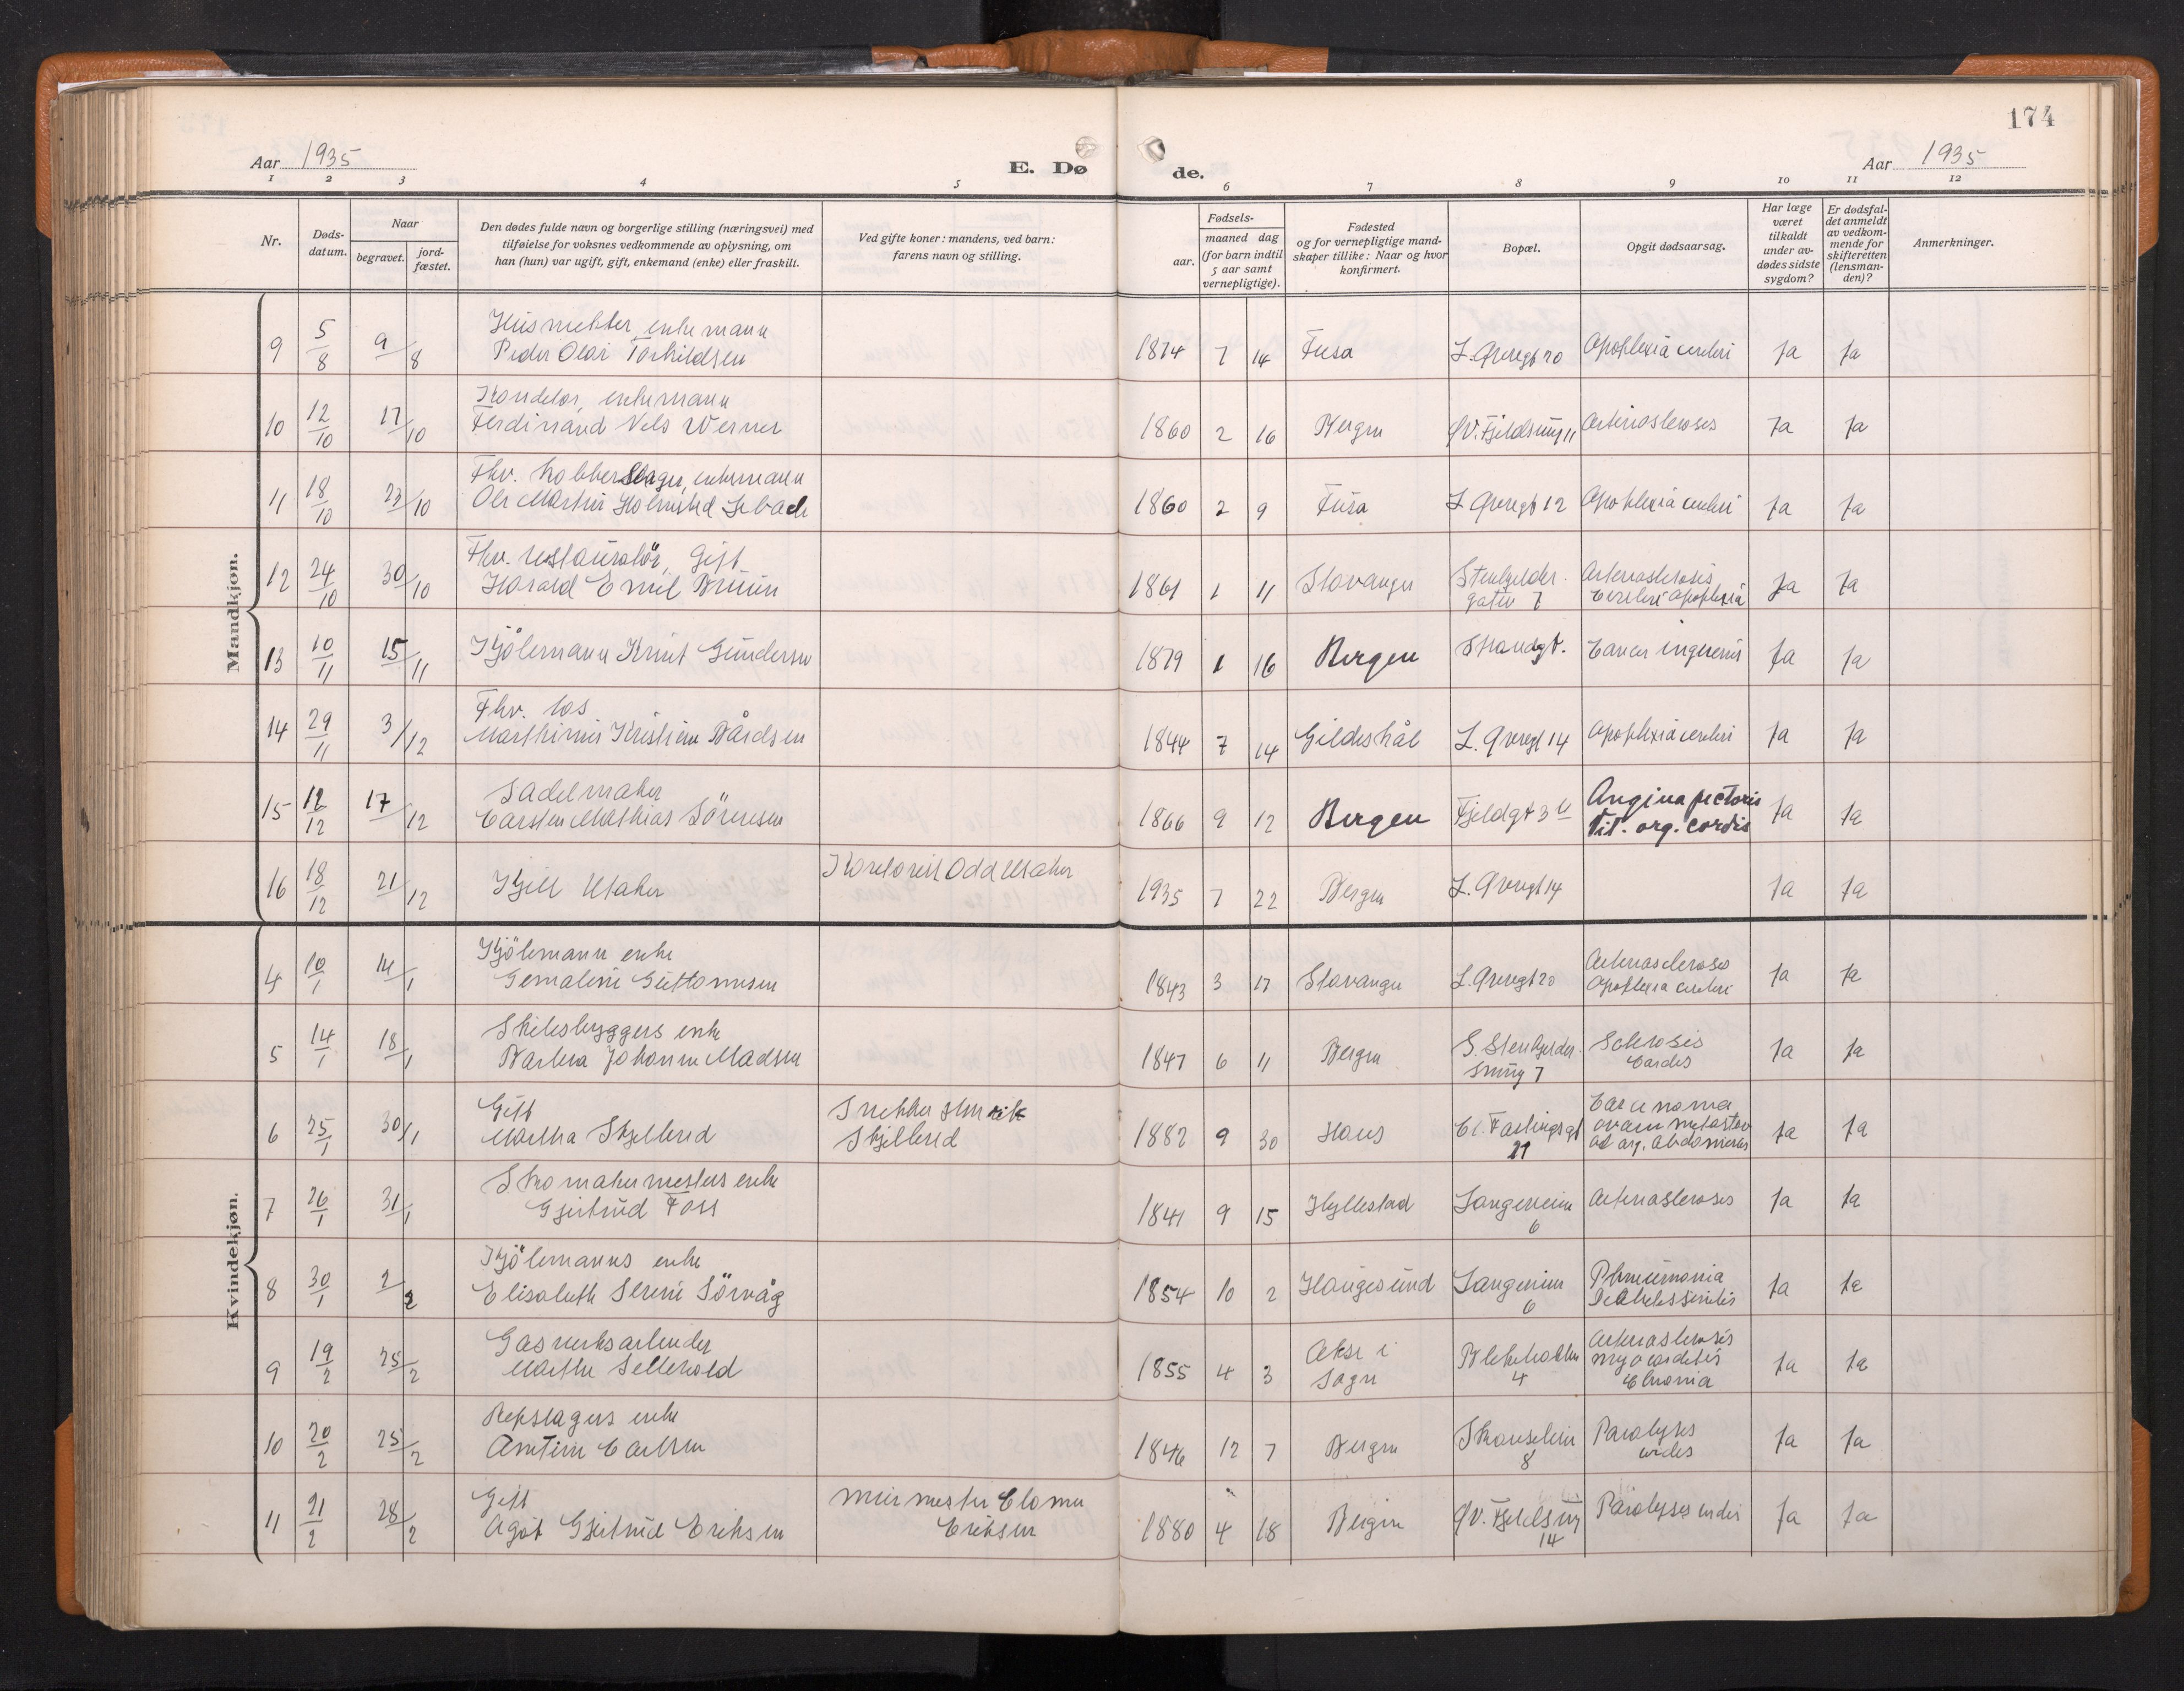 174
Aar 1935
E. Dø
de.
Aar 1935
1 2 3 4 5 6 7 8 9 10 11 12
Nr.
Døds-
datum.
Naar
begravet.
jord-
fæstet.
Den dødes fulde navn og borgerlige stilling (næringsvei) med
tilføielse for voksnes vedkommende av oplysning, om
han (hun) var ugift, gift, enkemand (enke) eller fraskilt.
Ved gifte koner: mandens, ved barn:
farens navn og stilling.
Fødsels-
aar.
maaned dag
(for barn indtil
5 aar samt
vernepligtige).
Fødested
og for vernepligtige mand-
skaper tillike: Naar og hvor
konfirmert.
Bopæl.
Opgit dødsaarsag.
Har læge
været
tilkaldt
under av-
dødes sidste
sygdom?
Er dødsfal-
det anmeldt
av vedkom-
mende for
skifteretten
(lensman-
den)?
Anmerkninger.
Mandkjøn.
9 5/8 9/8 enkemann
Peder Olai Torkildsen 1874 7 14 Fusa Apoplexia cerebri Ja Ja
10 12/10 17/10 enkemann
Ferdinand Nels Werner 1860 2 16 Bergen Arteriosclerosis Ja Ja
11 18/10 23/10 Fhv. kobberslager, enkemann
Ole Martin 1860 2 9 Fusa Apoplexia cerebri Ja Ja
12 24/10 30/10 Fhv. restauratør, Gift
Harald Emil Bruun 1861 1 11 Stavanger Stenkjelder-
gaten 7 Arteriosclerosis
Cerebri apoplexia Ja Ja
13 10/11 15/11 Kjölemann Knut Gundersen 1879 1 16 Bergen Strandgt. Cancer Ja Ja
14 29/11 3/12 Fhv. los
Marthinus Kristian Bårdsen 1844 7 14 Gildeskål Apoplexia cerebri Ja Ja
15 12/12 17/12 Sadelmaker
Carsten Mathias Sörensen 1866 9 12 Bergen Fjeldgt 3 Angina pectoris
Vit. org. cordis Ja Ja
16 18/12 21/12 Kjell Utaker Odd Utaker 1935 7 22 Bergen Ja Ja
Kvindekjøn.
4 10/1 14/1 Kjölemann enke
Guttormsen 1843 3 17 Stavanger Arteriosclerosis
Apoplexia cerebri Ja Ja
5 14/1 18/1 Skibsbyggers enke
Barbra Johanne Madsen 1847 6 11 Bergen S. Stenkjelder-
smug 7 Sclerosis
Cordis Ja Ja
6 25/1 30/1 Gift
Martha Skjellerud Snekker Henrik
Skjellerud 1882 9 30 Haus
Carcinoma
ad org. abdominis Ja Ja
7 26/1 31/1 Skomakermesters enke
Gjertrud Foss 1841 9 15 Hyllestad
6 Arteriosclerosis Ja Ja
8 30/1 2/2 Kjölemanns enke
Elisabeth Serine Sörvåg 1854 10 2 Haugesund
6 Pneumonia
Ja Ja
9 19/2 25/2 Gasverksarbeider
Marthe Sellevold 1855 4 3 Aksr i
Sogn Blekeholm
4 Arteriosclerosis
myocarditis
Ja Ja
10 20/2 25/2 Repslagers enke
Carlsen 1846 12 7 Bergen Skanselien
8 Paralysis
cordis Ja Ja
11 21/2 28/2 Gift
Agot Gjertrud Eriksen Murmester
Eriksen 1880 4 18 Bergen
14 Paralysis cordis Ja Ja